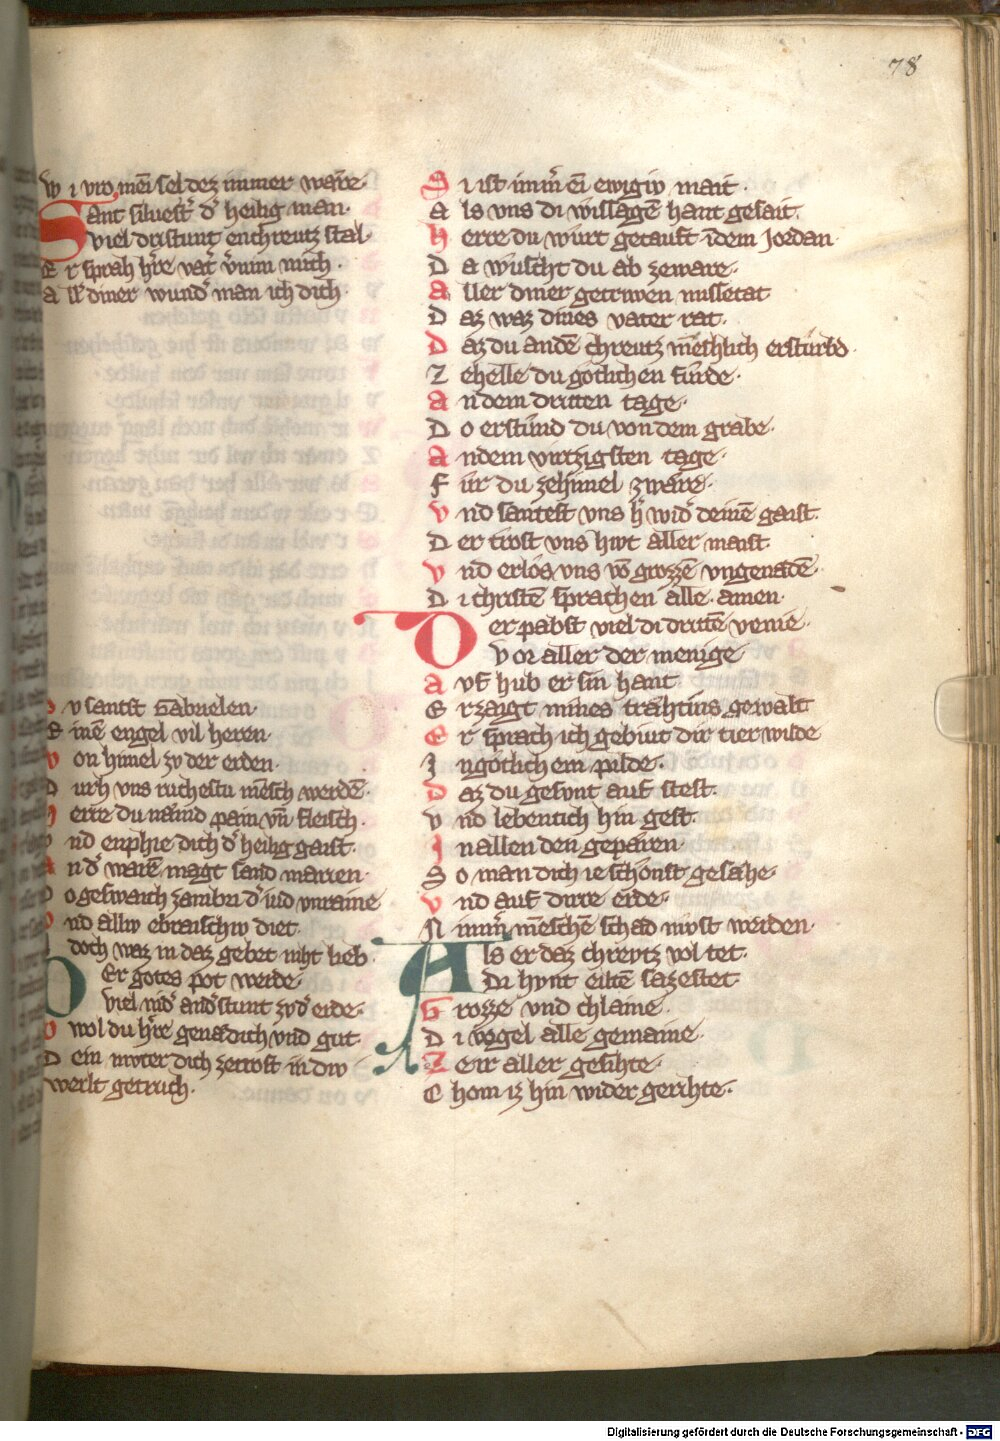 78
W i vro mei sel dez immer ware·
Sant siluest' d' heilig man·
viel dristunt enchreutz stal·
E r sprah h're vat' v'nim mich·
a ll' diner wund' man ich dich·
D v santst Gabrielen·
E inē engel vil heren·
v on himel zv der erden·
D urh vns ruchestu mēsch werdē·
h erre du nāmd pain vn̄ fleisch·
v nd enphie dich d' heilig gaist·
A n d' warē magt sand marien·
D o geswaich zambri d' iud vnraine
v nd alliv ebraischiv diet·
doch waz in daz gebet niht lieb·
Der gotes pot werde·
Viel nid' and'stunt zvd' erde·
D wol du h're genadich vnd gut·
D ein mvter dich zetrost in div
werlt getruch·
S i ist imm' ei ewigiv mait·
A ls vns di wissagē hant gesait·
H erre du wurt getauft īdem Jordan·
D a wuscht du ab zeware·
A ller diner getriwen missetat
D az waz dines vater rat·
D az du andē chreutz mēschlich ersturbd·
Z ehelle du gotlichen furde·
A n dem dritten tage·
D o erstund du von dem grabe·
A ndem virtzigsten tage·
F ur du zehimel zware·
V nd santest vns h' wid' deinē gaist·
D er trost vns hivt aller maist·
V nd erlos vns vō grozzē vngenadē·
D i christē sprachen alle· amen·
Der pabst viel di drittē venie·
Vor aller der menige
A vf hub er sin hant
E rzaigt mines trahtins gewalt
E r sprach ich gebiut dir tier wilde
I n gotlichem pilde·
D az du gesvnt auf stest·
V nd lebentich hin gest·
I n allen den geparen·
S o man dich ie schonst gesahe·
V nd auf dirre erde·
N imm' mēschē schad mvst werden·
Als er daz chreytz vol tet·
Di hvnt eiltē sazestet·
G rozze vnd chlaine·
D i vogel alle gemaine·
Z e ir aller gesihte·
C hom iz hin wider gerihte·
Digitalisierung gefördert durch die Deutsche Forschungsgemeinschaft - DFG